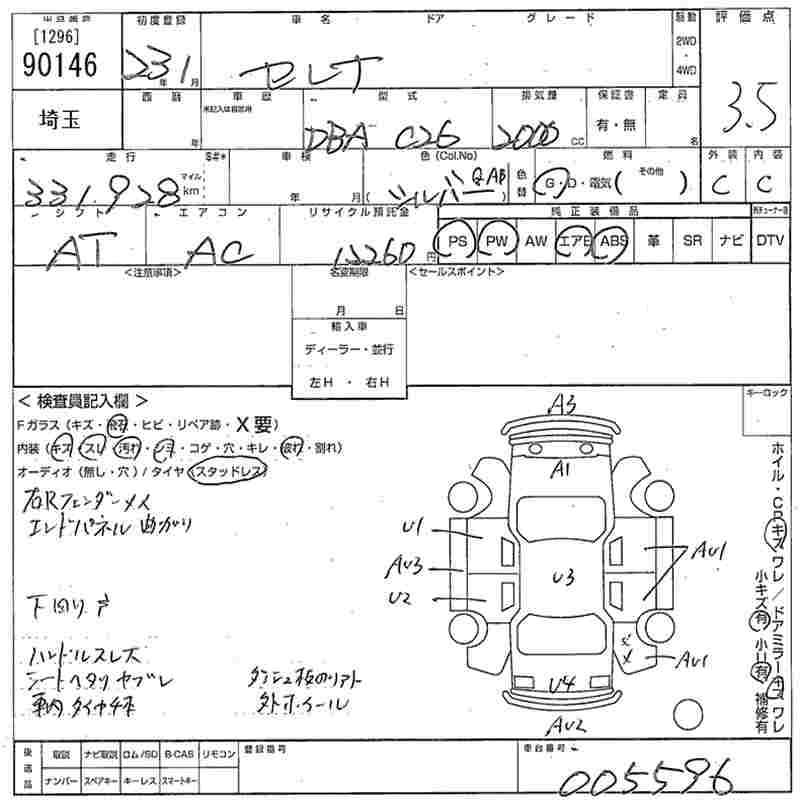 [1296]
90146
初度登録 車名 ドア グレード 駆動 評価点
23年 1月 セレナ 2WD・4WD 3.5
埼玉
西暦 車歴 型式 排気量 保証書 定員
年 未記入は自家用 DBA C26 2000 CC 有・無 名
走行 車検 色(Col.No) 色替 燃料 外装 内装
331,928 マイル km 年 月 シルバー QAB G・D・電気( その他 ) C C
シフト エアコン リサイクル預託金 純正装備品
AT AC 12260円 PS PW AW エアB ABS 革 SR ナビ DTV
<注意事項> 名変期限 <セールスポイント>
月 日
輸入車
ディーラー・並行
左H・右H
<検査員記入欄> キーロック
Fガラス(キズ・飛石・ヒビ・リペア跡・X要)
内装(キズ・スレ・汚れ・シミ・コゲ・穴・キレ・破れ・割れ)
オーディオ(無し・穴)/タイヤ(スタッドレス)
右Rフェンダーメス
エンドパネル曲がり
下回りサ
ハンドルスレス
シートヘタリヤブレ
車内タイヤ4本
外ホイール
A3
A1
U1
AU3
U2
U3
AU1
AU1
U4
AU2
ホイル・CPキズワレ/ドアミラーキズワレ
小キズ有 小U有 補修有
後送品 取説 ナビ取説 ロム/SD B-CAS リモコン 登録番号 車台番号
ナンバー スペアキー キーレス スマートキー
005596